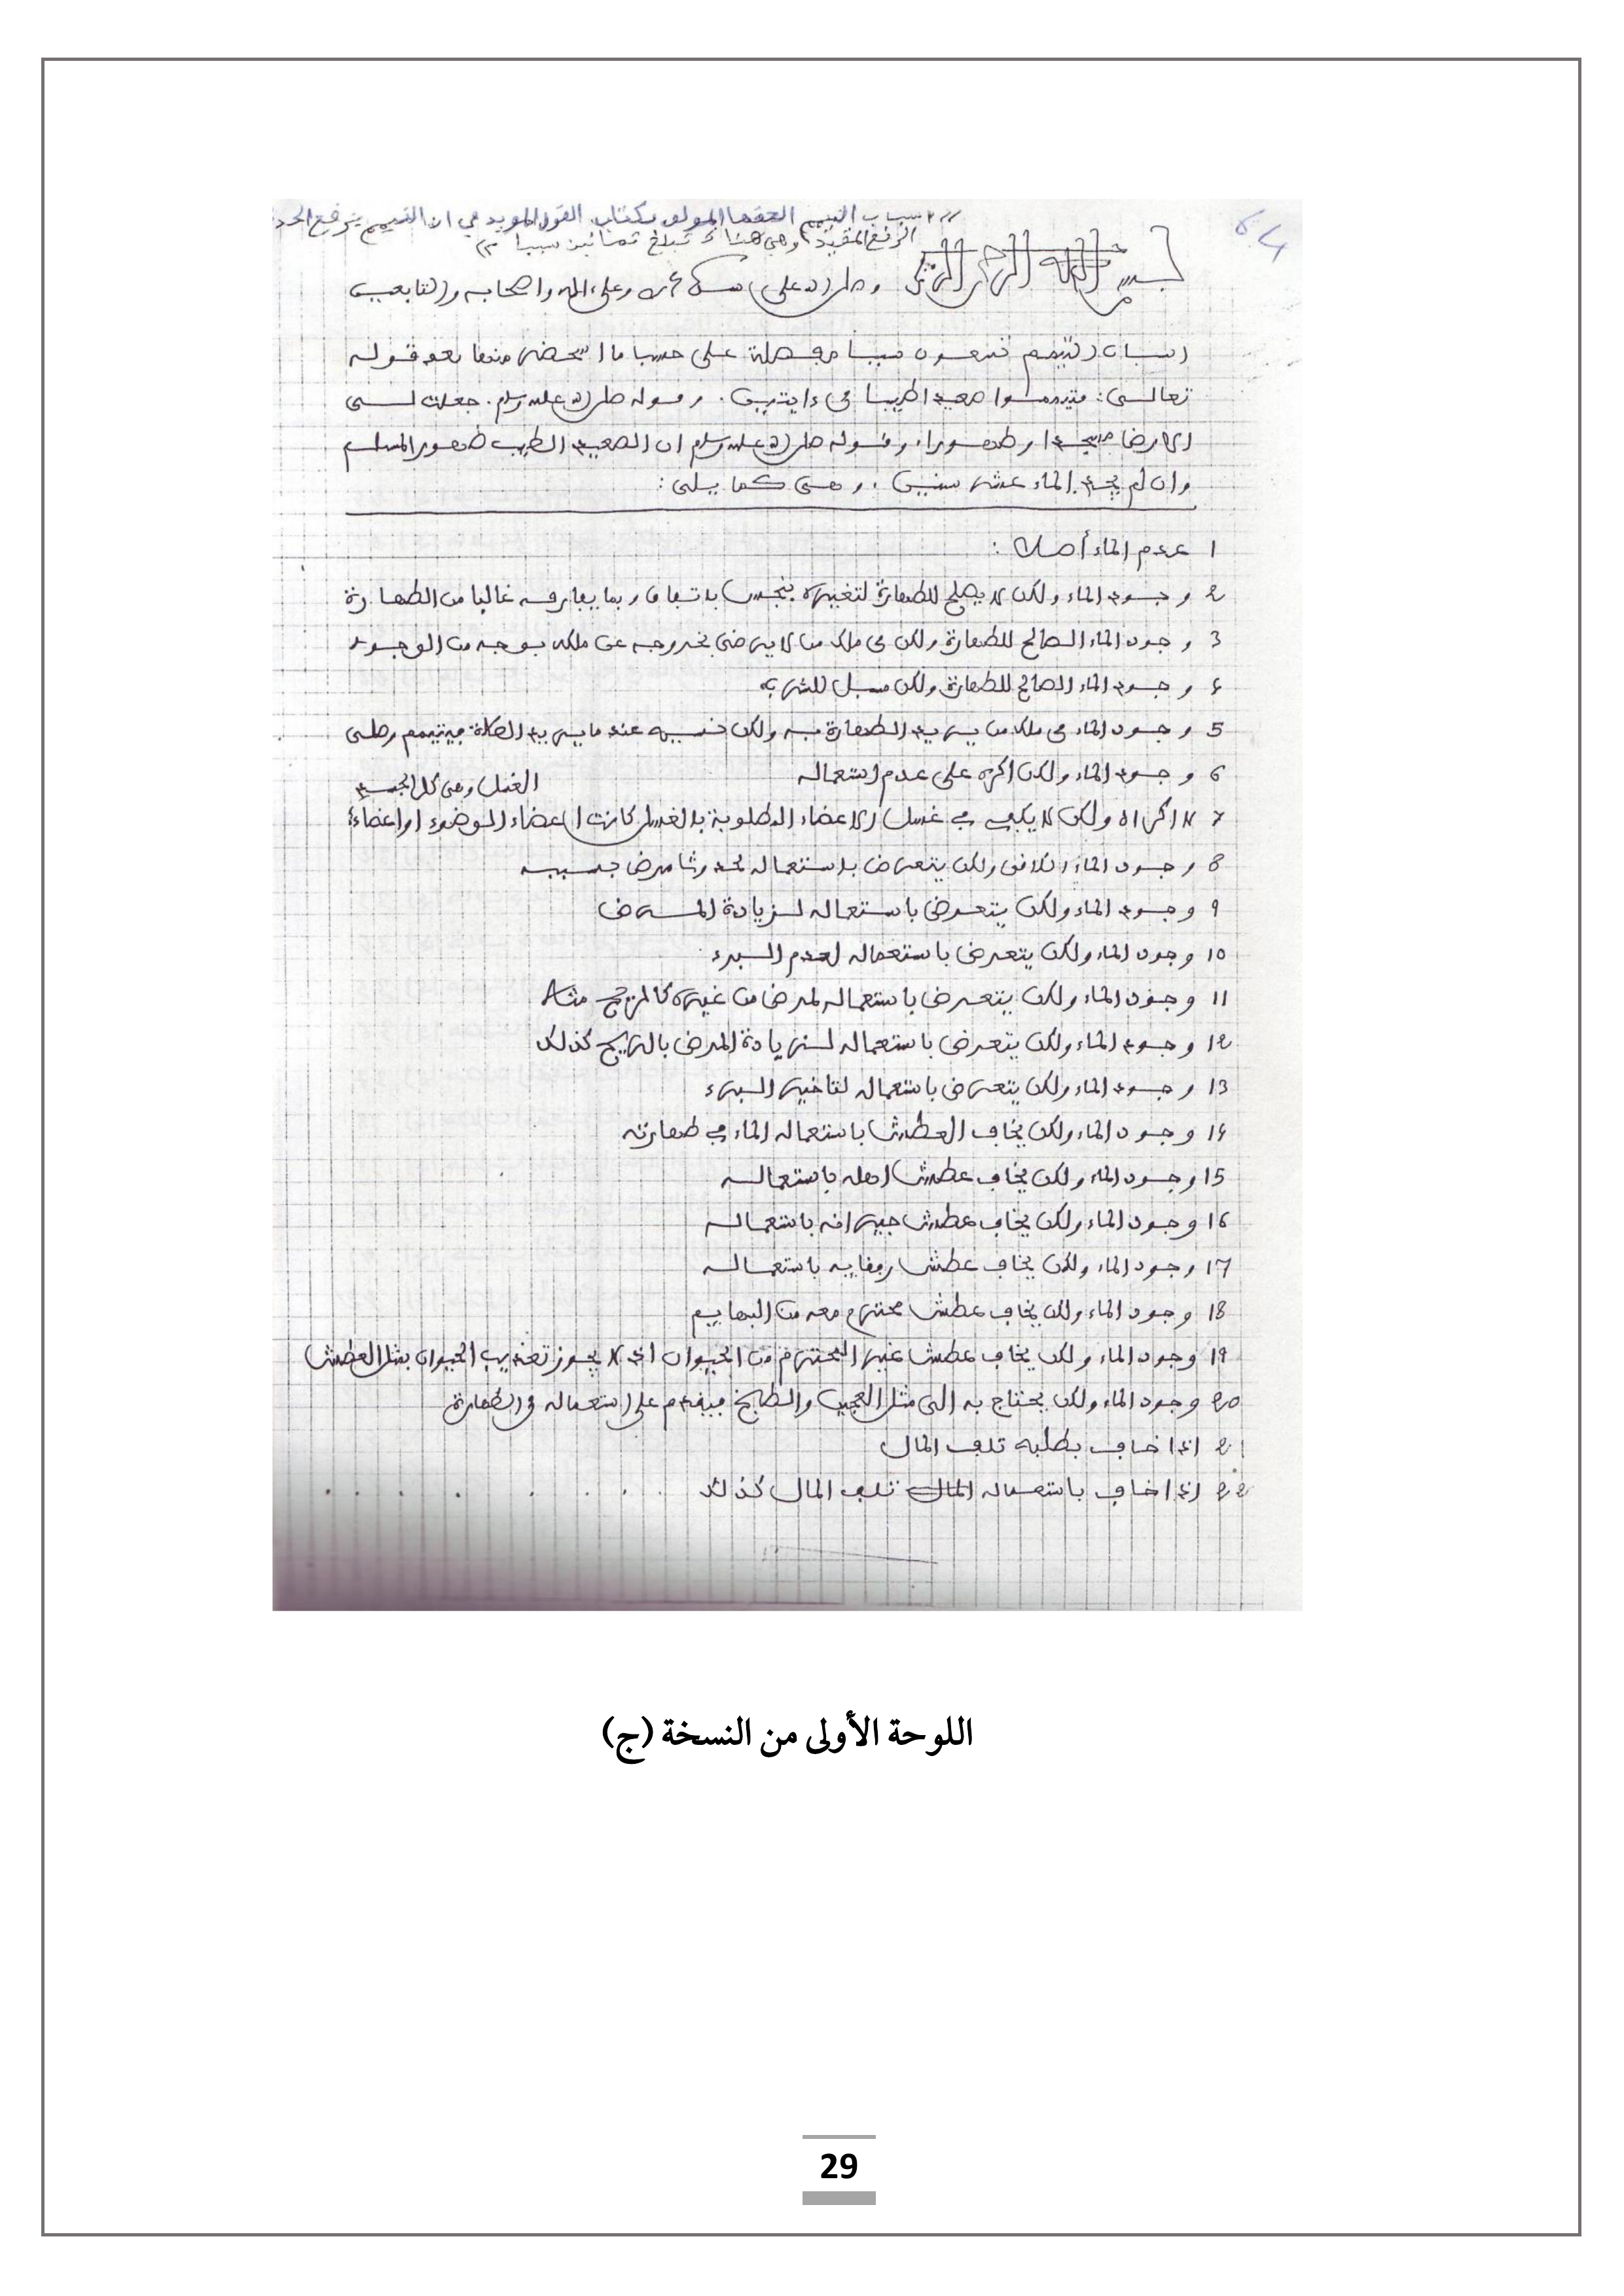 64
أسباب التيمم ألحقها المؤلف بكتاب القول المويد في ان التيمم يرفع الحدث
الرفع المقيد وهي هنا تبلغ ثمانين سببا
بسم الله الرحمن الرحيم وصلى الله على محمد وعلى اله واصحابه والتابعين
اسباب التيمم سببا مفصلة على حسب ما استحضر منها بعد قوله
تعالى: فتيمموا صعيدا طيبا في ءايتين. وقوله صلى الله عليه وسلم. جعلت لي
الارض مسجدا وطهورا، وقوله صلى الله عليه وسلم ان الصعيد الطيب طهور المسلم
وان لم يجد الماء عشر سنين، وهي كما يلي:
1 عدم الماء أصلا:
2 وجود الماء ولكن لا يصلح للطهارة لتغيره بنجس باتفاق وبما يفارقه غالبا من الطهارة
3 وجود الماء الصالح للطهارة ولكن في ملك من لا يرضى بخروجه عن ملكه بوجه من الوجوه
4 وجود الماء الصالح للطهارة ولكن مسبل للشرب
5 وجود الماء في ملك من يريد الطهارة به ولكن نسيه عند ما يريد الصلاة فيتيمم وصلى
6 وجود الماء ولكن اكره على عدم استعماله
7 لا اكراه ولكن لا يكفي في غسل الاعضاء المطلوبة بالغسل كانت اعضاء الوضوء او اعضاء
الغسل وهي كل الجسد
8 وجود الماء الكافي ولكن يتعرض باستعماله لحدوث مرض بسببه
9 وجود الماء ولكن يتعرض باستعماله لزيادة المرض
10 وجود الماء ولكن يتعرض باستعماله لعدم البرء
11 وجود الماء ولكن يتعرض باستعماله لمرض من غيره كالريح مثلا
12 وجود الماء ولكن يتعرض باستعماله لزيادة المرض بالريح كذلك
13 وجود الماء ولكن يتعرض باستعماله لتاخير البرء
14 وجود الماء ولكن يخاف العطش باستعماله الماء في طهارته
15 وجود الماء ولكن يخاف عطش اهله باستعماله
16 وجود الماء ولكن يخاف عطش جيرانه باستعماله
17 وجود الماء ولكن يخاف عطش رفقايه باستعماله
18 وجود الماء ولكن يخاف عطش محترم معه من البهايم
19 وجود الماء ولكن يخاف عطش غير المحترم من الحيوان اذ لا يجوز تعذيب الحيوان بمثل العطش
20 وجود الماء ولكن يحتاج به الى مثل العجين والطبخ فيقدم على استعماله في الطهارة
21 اذا خاف بطلبه تلف المال
22 اذا خاف باستعماله المال تلف المال كذلك
اللوحة الأولى من النسخة (ج)
29